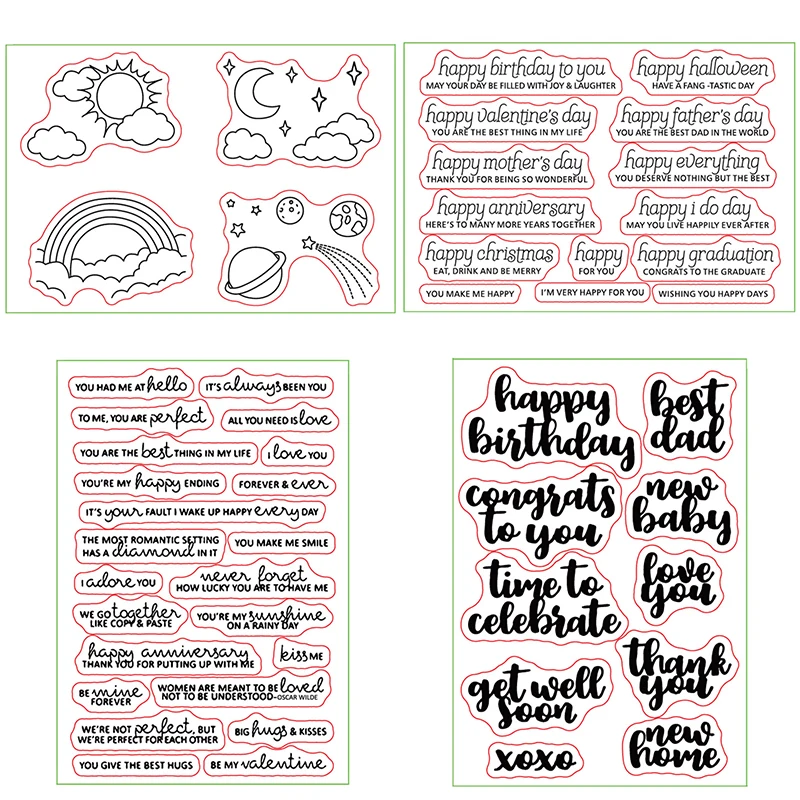 happy birthday to you
MAY YOUR DAY BE FILLED WITH JOY & LAUGHTER
happy halloween
HAVE A FANG -TASTIC DAY
happy valentine's day
YOU ARE THE BEST THING IN MY LIFE
happy father's day
YOU ARE THE BEST DAD IN THE WORLD
happy mother's day
THANK YOU FOR BEING SO WONDERFUL
happy everything
YOU DESERVE NOTHING BUT THE BEST
happy anniversary
HERE'S TO MANY MORE YEARS TOGETHER
happy i do day
MAY YOU LIVE HAPPILY EVER AFTER
happy christmas
EAT, DRINK AND BE MERRY
happy
FOR YOU
happy graduation
CONGRATS TO THE GRADUATE
YOU MAKE ME HAPPY
I'M VERY HAPPY FOR YOU
WISHING YOU HAPPY DAYS
YOU HAD ME AT hello
IT'S always BEEN YOU
TO ME, YOU ARE perfect
ALL YOU NEED IS love
YOU ARE THE best THING IN MY LIFE
I love YOU
YOU'RE MY happy ENDING
FOREVER & ever
IT'S your FAULT I WAKE UP HAPPY every DAY
THE MOST ROMANTIC SETTING
HAS A diamond IN IT
YOU MAKE ME SMILE
I adore YOU
never forget
HOW LUCKY YOU ARE TO HAVE ME
WE GO together
LIKE COPY & PASTE
YOU'RE MY sunshine
ON A RAINY DAY
happy anniversary
THANK YOU FOR PUTTING UP WITH ME
kiss ME
BE mine
FOREVER
WOMEN ARE MEANT TO BE loved
NOT TO BE UNDERSTOOD-OSCAR WILDE
WE'RE NOT perfect, BUT
WE'RE PERFECT FOR EACH OTHER
BIG hugs & KISSES
YOU GIVE THE BEST HUGS
BE MY valentine
happy
birthday
best
dad
congrats
to you
new
baby
time to
celebrate
love
you
get well
soon
thank
you
xoxo
new
home